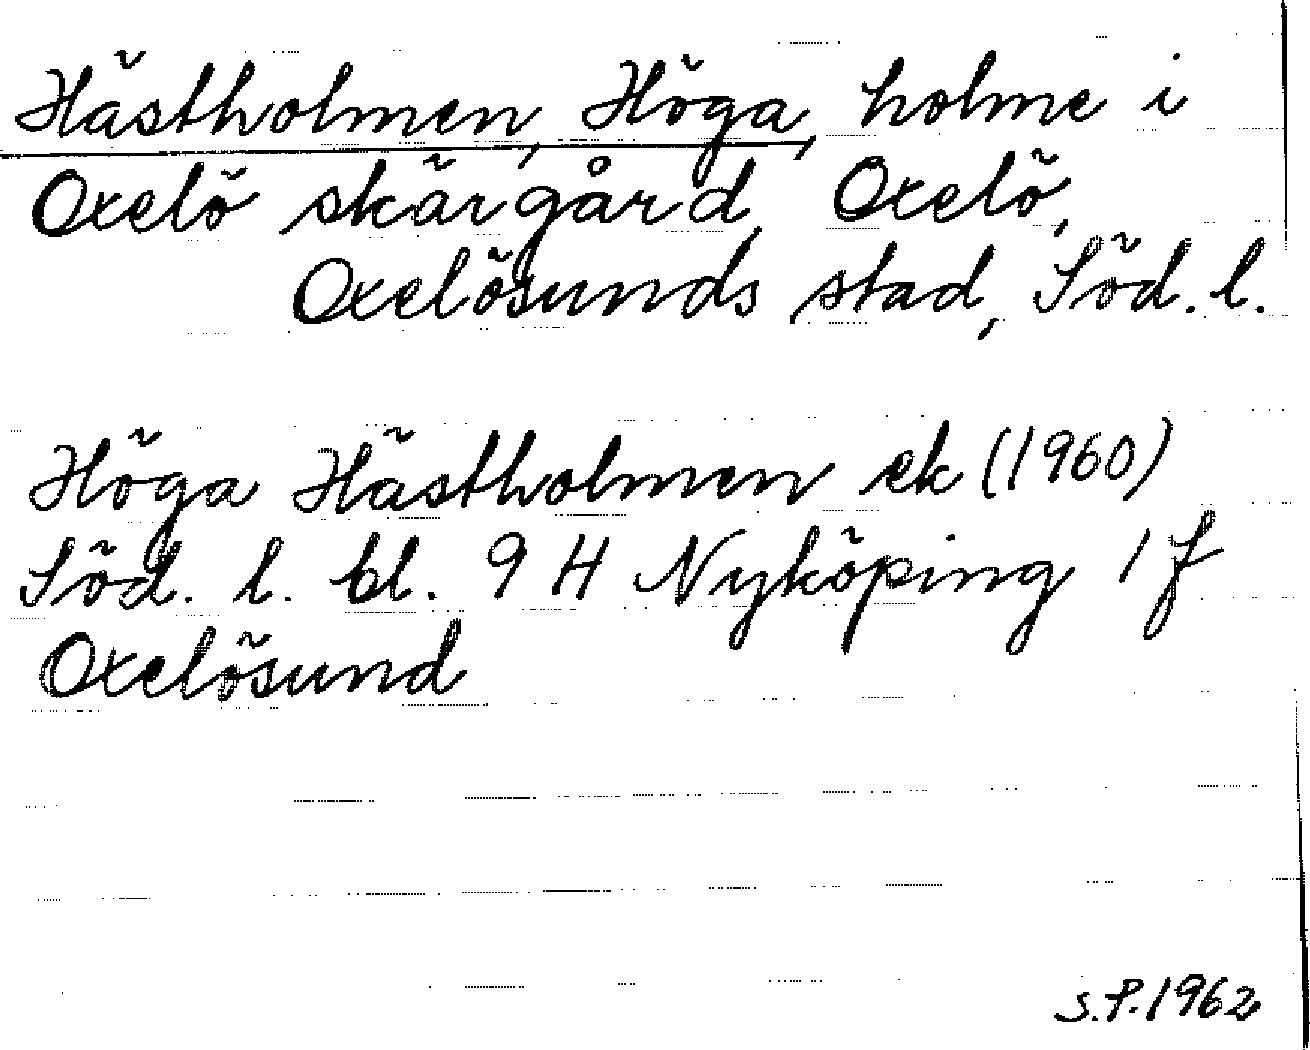 Hästholmen, Höga, holme i
Oxelö skärgård, Oxelö,
Oxelösunds stad, Söd. l.
Höga Hästholmen ek (1960)
Söd. l. bl. 9 H Nyköping 1 f
Oxelösund
S.P. 1962